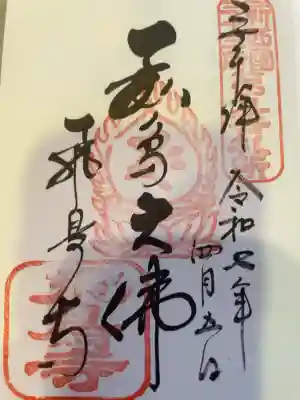 奉拝 令和七年
四月五日
飛鳥大佛
飛鳥寺